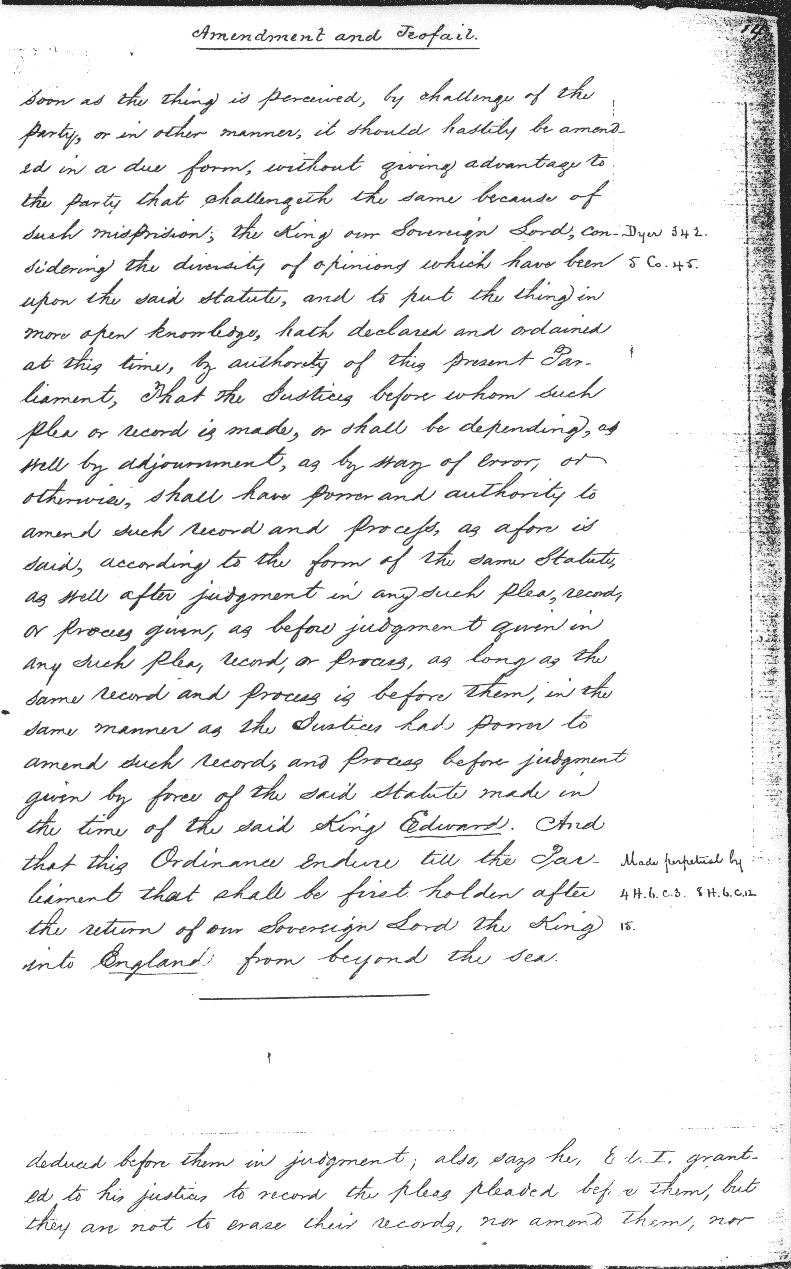 Amendment and Jeofail.
14
soon as the thing is perceived, by challenge of the
party, or in other manner, it should hastily be amend-
ed in a due form, without giving advantage to
the party that challengeth the same because of
such misprision; the King our Sovereign Lord, con-
Dyer 342.
sidering the diversity of opinions which have been
5 Co. 45.
upon the said statute, and to put the thing in
more open knowledge, hath declared and ordained
at this time, by authority of this present Par-
liament, That the Justices before whom such
plea or record is made, or shall be depending, as
well by adjournment, as by way of error, or
otherwise, shall have power and authority to
amend such record and process, as afore is
said, according to the form of the same Statute,
as well after judgment in any such plea, record,
or process given, as before judgment given in
any such plea, record, or process, as long as the
same record and process is before them, in the
same manner as the Justices had power to
amend such record, and process before judgment
given by force of the said statute made in
the time of the said King Edward. And
that this Ordinance endure till the Par-
Made perpetual by
liament that shall be first holden after
4 H.6.c.3. 8 H.6.c.12
the return of our Sovereign Lord the King
15.
into England from beyond the sea.
deduced before them in judgment; also, says he, E. I. grant-
ed to his justices to record the pleas pleaded before them, but
they are not to erase their records, nor amend them, nor